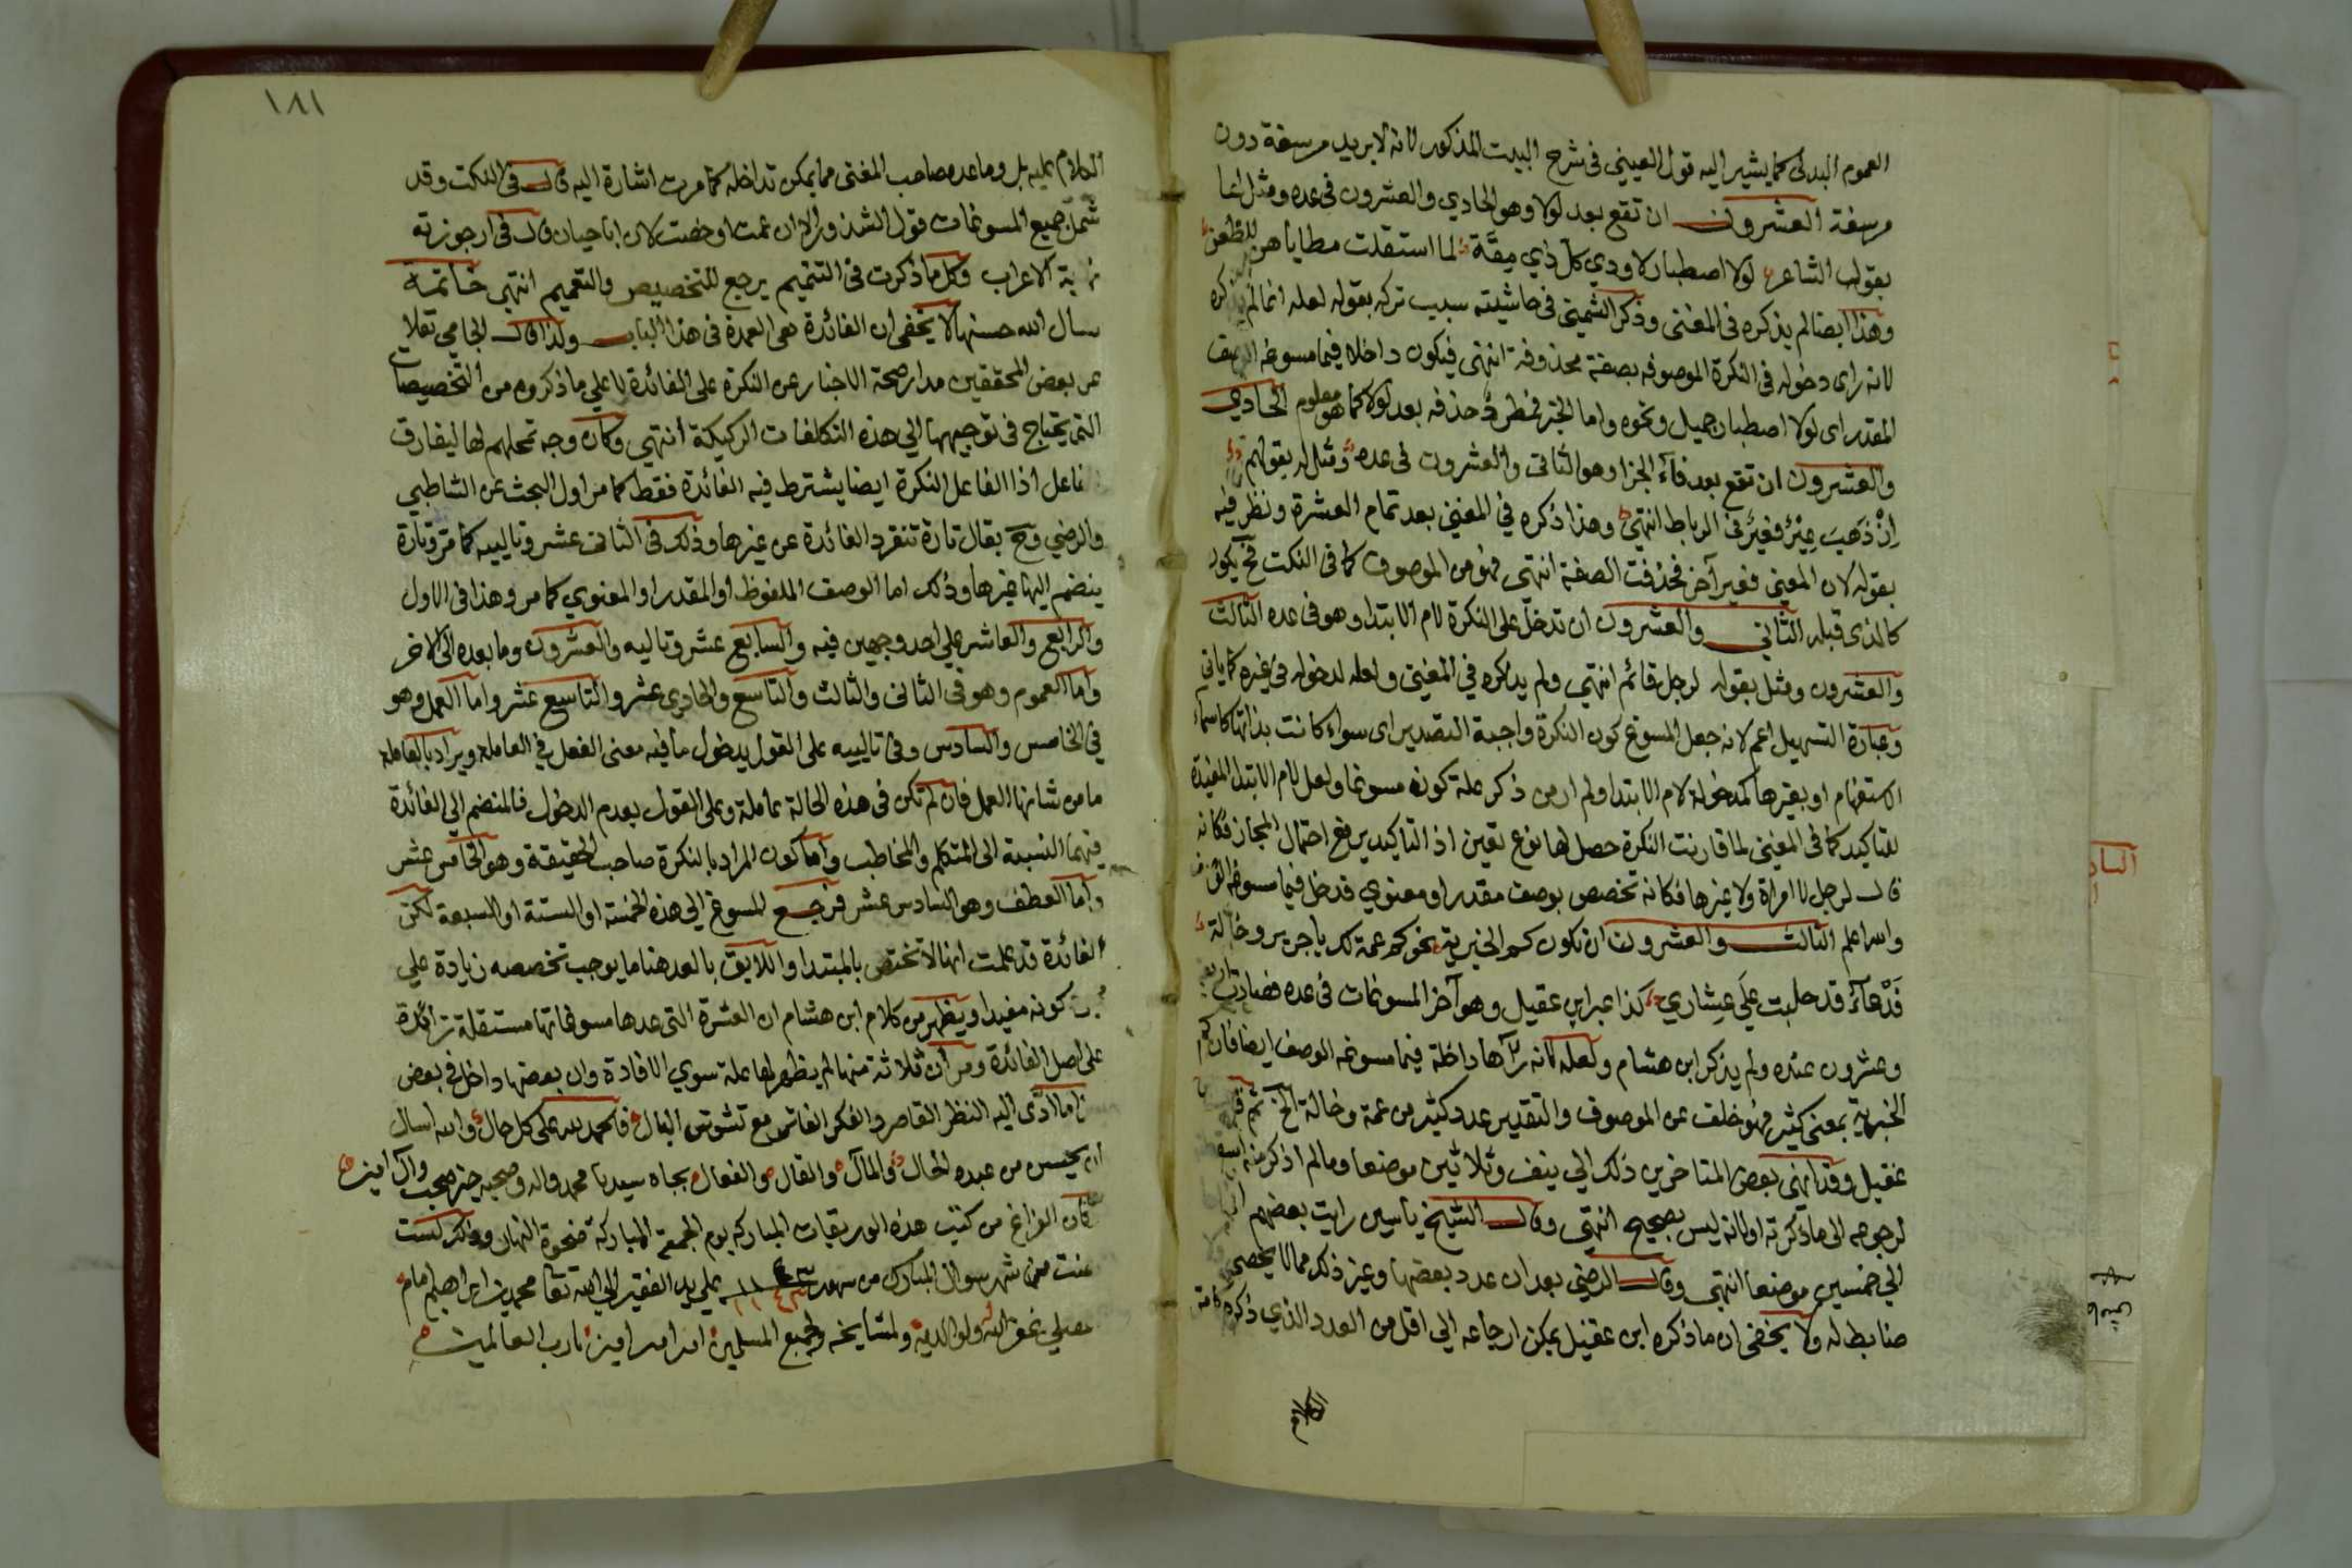 العموم البدلى كما يشير اليه قول العينى فى شرح البيت المذكور لانه لا يريد مرسغة دون
مرسغة العشرون ان تقع بعد لولا وهو الحادي والعشرون فى عده ومثل لها
بقول الشاعر لولا اصطبار لاودي كل ذي مقة لما استقلت مطاياهن للظعن
وهذا ايضا لم يذكره فى المغنى وذكر الشمنى فى حاشيته سبب تركه بقوله لعله انما لم يذكره
لانه راى دخوله فى النكرة الموصوفه بصفة محذوفة انتهى فيكون داخلا فيما مسوغه الوصف
المقدر اى لولا اصطبار جميل ونحوه واما الخبر فمطرد حذفه بعد لولا كما هو معلوم الحادي
والعشرون ان تقع بعد فآء الجزا وهو الثانى والعشرون فى عده ومثل له بقولهم
اِنْ ذَهَبَ عِيْرٌ فعَيْرٌ فى الرباط انتهى وهذا ذكره فى المغنى بعد تمام العشرة ونظر فيه
بقوله لان المعنى فعير آخر فحذفت الصفة انتهى فهو من الموصوف كما فى النكت فح يكون
كالذى قبله الثانى والعشرون ان تدخل على النكرة لام الابتدا وهو فى عده الثالث
والعشرون ومثل بقوله لرجل قائم انتهى ولم يذكره في المغنى ولعله لدخوله فى غيره كما ياتي
وعبارة التسهيل اعم لانه جعل المسوغ كون النكرة واجبة التصدير اى سواء كانت بذاتها كاسماء
الاستفهام او بغيرها كمدخولة لام الابتدا ولم ار من ذكر علة كونه مسوغا ولعل لام الابتدا المفيدة
للتاكيد كما فى المغنى لما قارنت النكرة حصل لها نوع تعين اذ التاكيد يرفع احتمال المجاز فكانه
قال لرجل لا امراة ولا غيرها فكانه تخصص بوصف مقدر او معنوي فدخل فيما مسوغه
والله اعلم الثالث والعشرون ان تكون كم الخبرية نحو كم عمة لك يا جرير وخالة
فَدْعَآءٌ قد حلبت عَلَي عِشاري كذا عبر ابن عقيل وهو آخر المسوغات فى عده فصارت اربعة
وعشرون عنده ولم يذكر ابن هشام ولعله لانه رآها داخلة فيما مسوغه الوصف ايضا فان كم
الخبرية بمعنى كثير فهو خلف عن الموصوف والتقدير عدد كثير من عمة وخالة الخ
عقيل وقد انهى بعض المتاخرين ذلك الي نيف وثلاثين موضعا ومالم اذكر منه
لرجوعه الى ما ذكرته او لانه ليس بصحيح انتهى وقال الشيخ ياسين رايت بعضهم
الي خمسين موضعا انتهى وقال الرضى بعد ان عدد بعضها وغير ذلك مما لا يحصى
ضابط له ولا يخفى ان ما ذكره ابن عقيل يمكن ارجاعه الي اقل من العدد الذي ذكره
الكلام
١٨١
الكلام عليه بل وما عده صاحب المغنى مما يمكن تداخله كما مرت اشارة اليه قال فى النكت وقد
شمل جميع المسوغات قول الشذور الا ان عمت او خصت لان ابا حيان قال فى ارجوزته
نهاية الاعراب وكل ما ذكرت فى التتميم يرجع للتخصيص والتعميم انتهى خاتمة
نسال الله حسنها لا يخفى ان الفائدة هى العمدة فى هذا الباب ولذا قال الجامي نقلا
عن بعض المحققين مدار صحة الاخبار عن النكرة على الفائدة لا علي ما ذكروه من التخصيصات
التى يحتاج فى توجيهها الي هذه التكلفات الركيكة انتهي وكان وجه تمحلهم لها ليفارق
الفاعل اذ الفاعل النكرة ايضا يشترط فيه الفائدة فقط كما مر اول البحث عن الشاطبي
والرضي وح يقال تارة تنفرد الفائدة عن غيرها وذلك فى الثانى عشر وتالييه كما مر وتارة
ينضم اليها غيرها وذلك اما الوصف الملفوظ او المقدر او المعنوي كما مر وهذا فى الاول
والرابع والعاشر علي احد وجهين فيه والسابع عشر وتاليه والعشرون وما بعده الى الاخر
واما العموم وهو فى الثانى والثالث والتاسع والحادي عشر والتاسع عشر واما العمل وهو
في الخامس والسادس وفى تالييه على القول بدخول ما فيه معنى الفعل في العاملة ويراد بالعاملة
ما من شانها العمل فان لم تكن فى هذه الحالة عاملة وعلى القول بعدم الدخول فالمنضم الي الفائدة
فيهما النسبة الى المتكلم والمخاطب واما كون المراد بالنكرة صاحب الحقيقة وهو الخامس عشر
واما العطف وهو السادس عشر فرجع المسوغ الي هذه الخمسة او الستة او السبعة لكن
الفائدة قد علمت انها لا تختص بالمبتدا واللايق بالعد هنا ما يوجب تخصصه زيادة علي
كونه مفيدا ويظهر من كلام ابن هشام ان العشرة التى عدها مسوغاتها مستقلة زائدة
على اصل الفائدة ومر ان ثلاثة منها لم يظهر لها علة سوي الافادة وان بعضها داخل فى بعض
هذا ما ادى اليه النظر القاصر والفكر الفاتر مع تشوش البال فالحمد لله على كل حال والله اسال
ان يحسن من عبده الحال والمآل والقال والفعال بجاه سيدنا محمد واله وصحبه خير صحب وآل امين
كان الفراغ من كتب هذه الوريقات المباركه يوم الجمعة المباركة ضحوة النهار وذلك لست
مضت من شهر شوال المبارك من شهور سنة علي يد الفقير الي الله تعا محمد بن ابراهيم امام
مصلي غفر الله له ولوالديه ولمشايخه ولجميع المسلمين امين امين امين يا رب العالمين